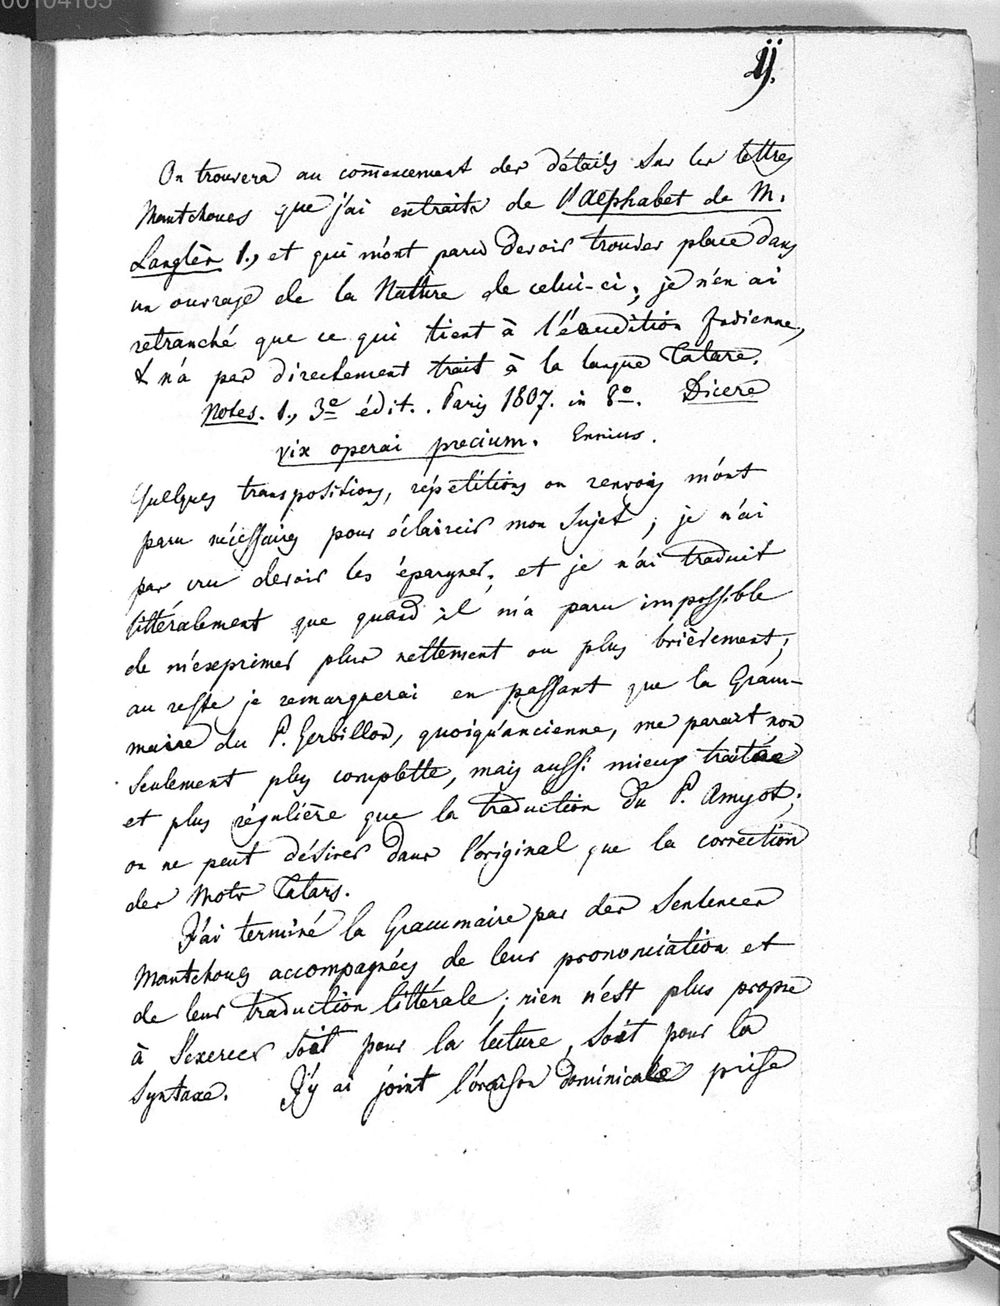 00104165
ij.
On trouvera au com̄encement des détails sur les lettres
Mantchoues que j'ai extraits de l'alphabet de M.
Langlès 1., et qui m'ont paru devoir trouver place dans
un ouvrage de la Nature de celui-ci; je n'en ai
retranché que ce qui tient à l'érudition Indienne,
& n'a pas directement trait à la langue Tatare.
Notes. 1., 3e édit. Paris 1807. in 8o. Dicere
vix operai precium. Ennius.
Quelques transpositions, répétitions ou renvois m'ont
paru nécessaires pour éclaircir mon sujet; je n'ai
pas cru devoir les épargner, et je n'ai traduit
littéralement que quand il m'a paru impossible
de m'exprimer plus nettement ou plus brièvement;
au reste je remarquerai en passant que la Gram-
maire du P. Gerbillon, quoiqu'ancienne, me parait non
seulement plus complette, mais aussi mieux traitée
et plus régulière que la traduction du P. Amyot;
on ne peut désirer dans l'original que la correction
des Mots Tatars.
J'ai terminé la Grammaire par des Sentences
Mantchoues accompagnées de leur prononciation et
de leur traduction littérale; rien n'est plus propre
à s'exercer soit pour la lecture, soit pour la
syntaxe. J'y ai joint l'oraison dominicale prise